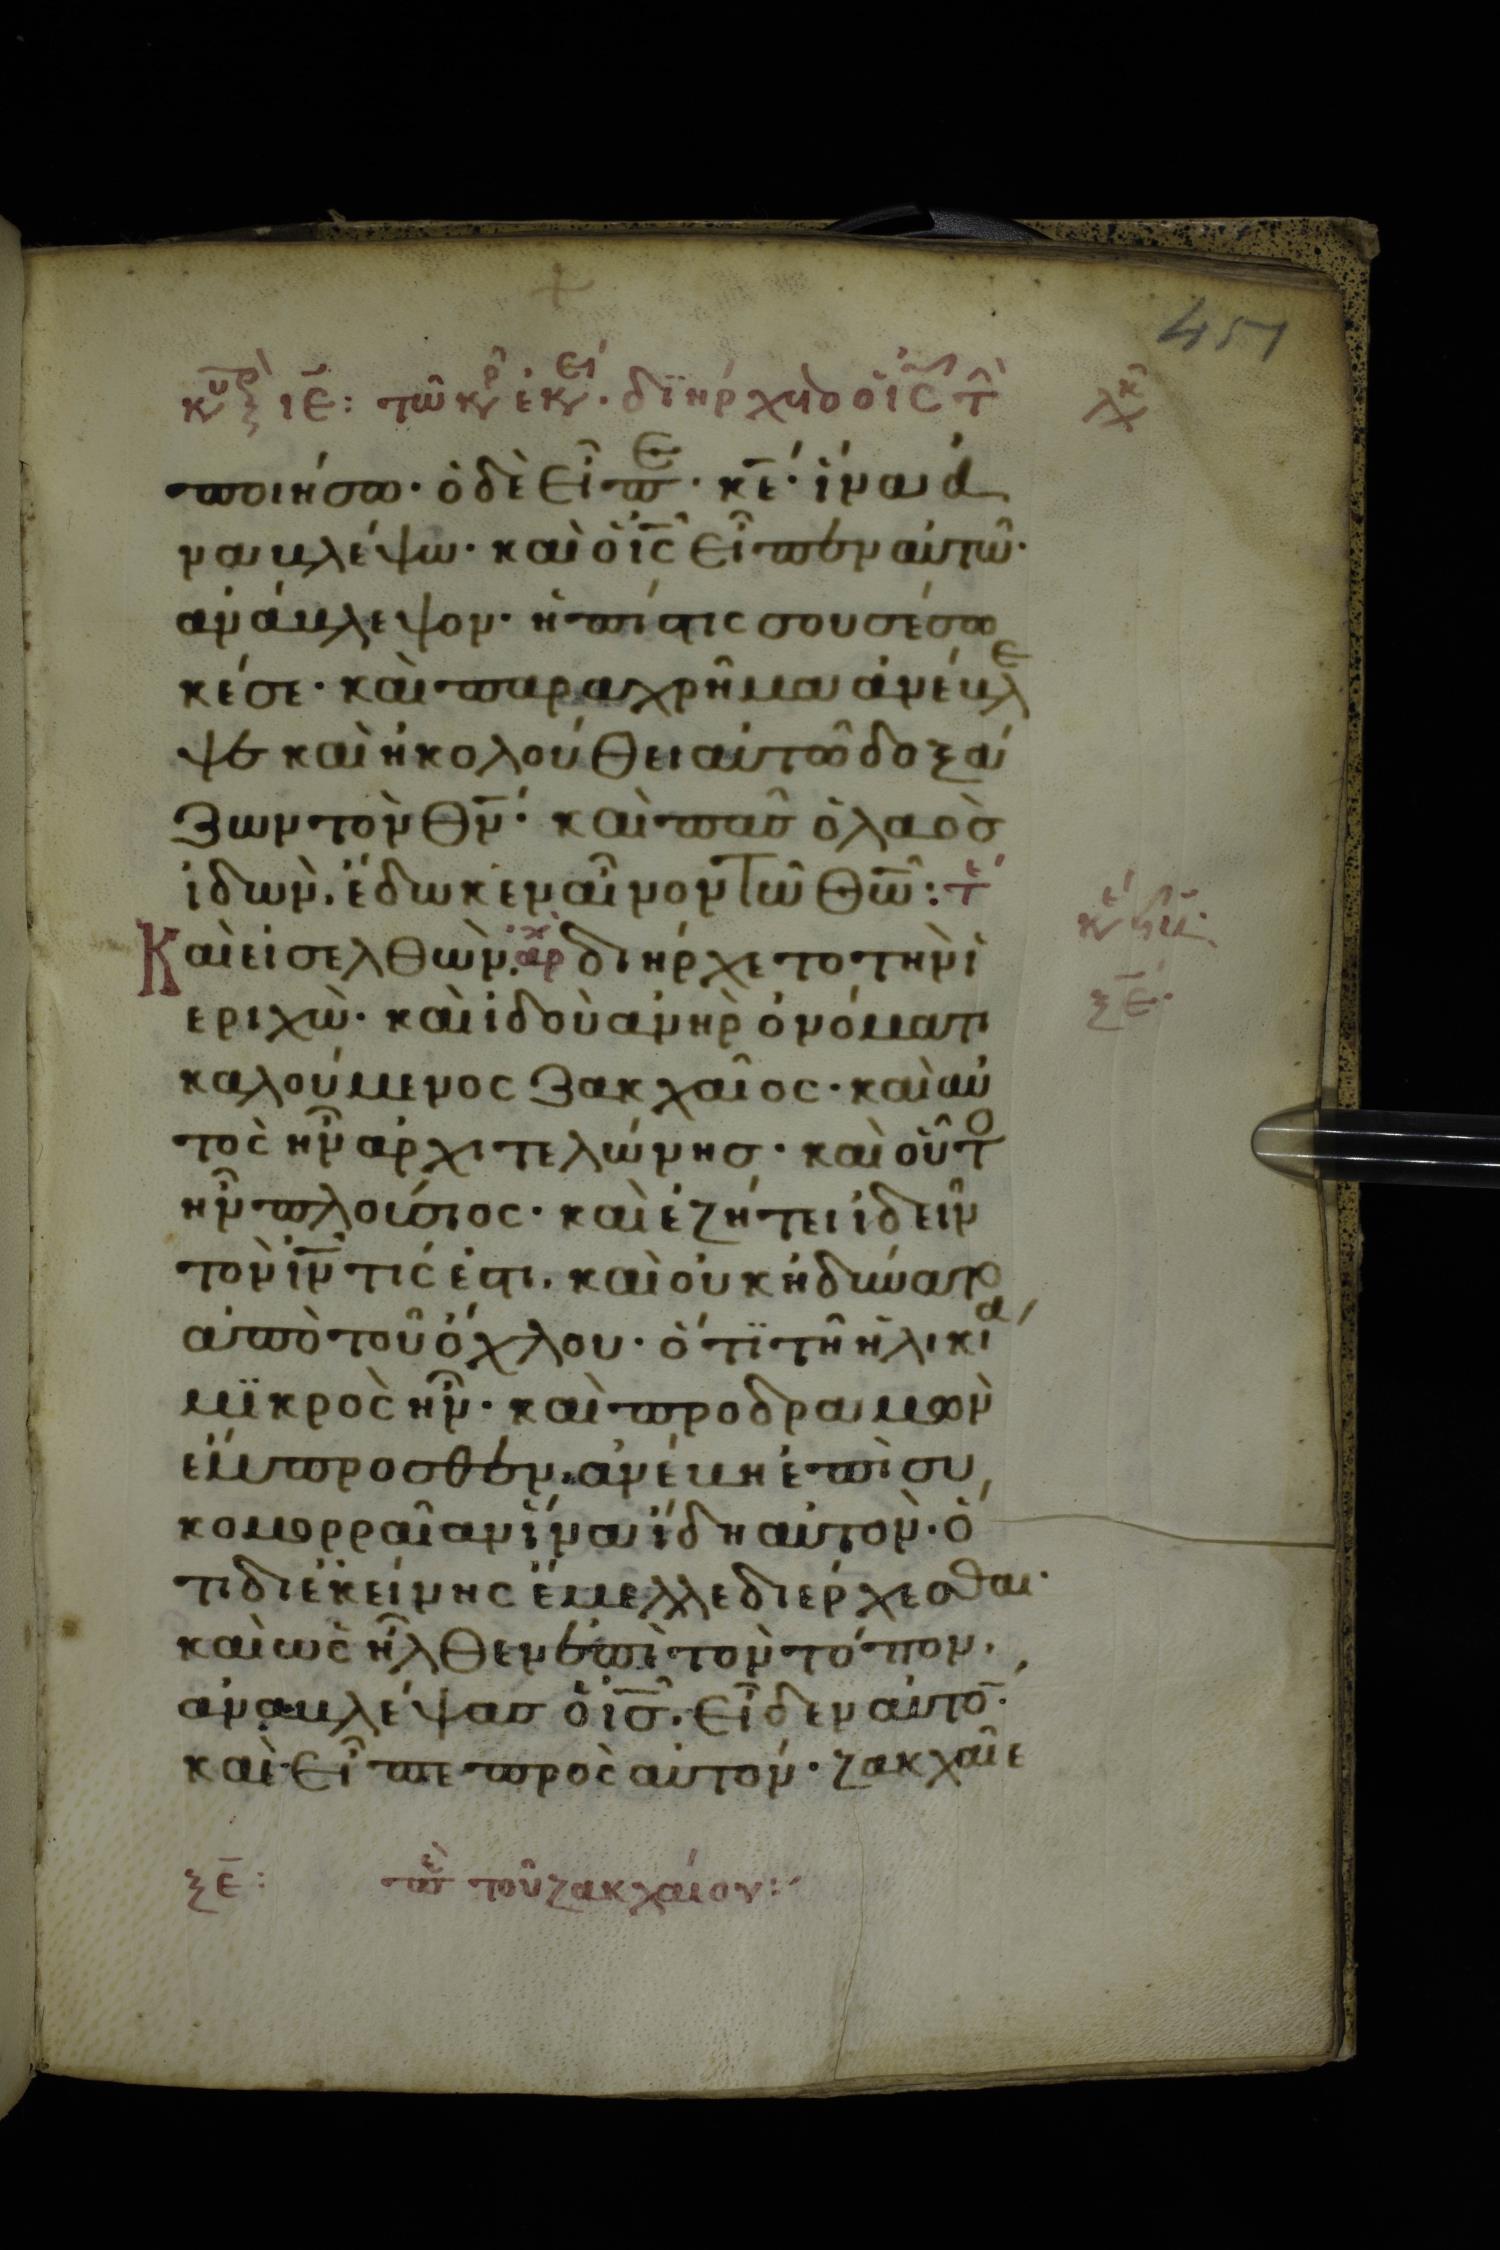 451
κυρ ιε: τῶ κρ ἐκει. διήρχετο ὁ ἰς τ
ποιήσω· ὁ δὲ εἶπε· κε· ἵνα ἀ
ναβλέψω· καὶ ὁ ἰς εἶπεν αὐτῶ·
ἀνάβλεψον· ἡ πίστις σου σέσω
κέσε· καὶ παραχρῆμα ἀνέβλε
ψε καὶ ἠκολούθει αὐτῶ δοξά
ζων τὸν θν· καὶ πᾶσ ὁ λαὸσ
ἰδὼν, ἔδωκεν αἶνον τῶ θω: τε
Καὶ εἰσελθὼν, αρχ διήρχετο τὴν ἱ
εριχὼ· καὶ ἰδοὺ ἀνὴρ ὀνόματι
καλούμενος Ζακχαῖος· καὶ αὐ
τὸς ἦν ἀρχιτελώνησ· καὶ οὗτο
ἦν πλούσιος· καὶ ἐζήτει ἰδεῖν
τὸν ἰν τίς ἐστι, καὶ οὐκ ἠδύνατο
ἀπὸ τοῦ ὄχλου· ὅτϊ τῆ ἡλικία
μϊκρὸς ἦν· καὶ προδραμὼν
ἔμπροσθεν, ἀνέβη ἐπὶ συ
κομορραῖαν ἵνα ἴδη αὐτὸν· ὅ
τι δι ἐκείνης ἔμελλε διέρχεσθαι·
καὶ ὡς ἦλθεν ἐπὶ τὸν τόπον,
ἀναβλέψασ ὁ ἰσ, εἶδεν αὐτό·
καὶ εἶπε πρὸς αὐτόν· ζακχαῖε
ξε·
ξε: περὶ τοῦ ζακχαίου: